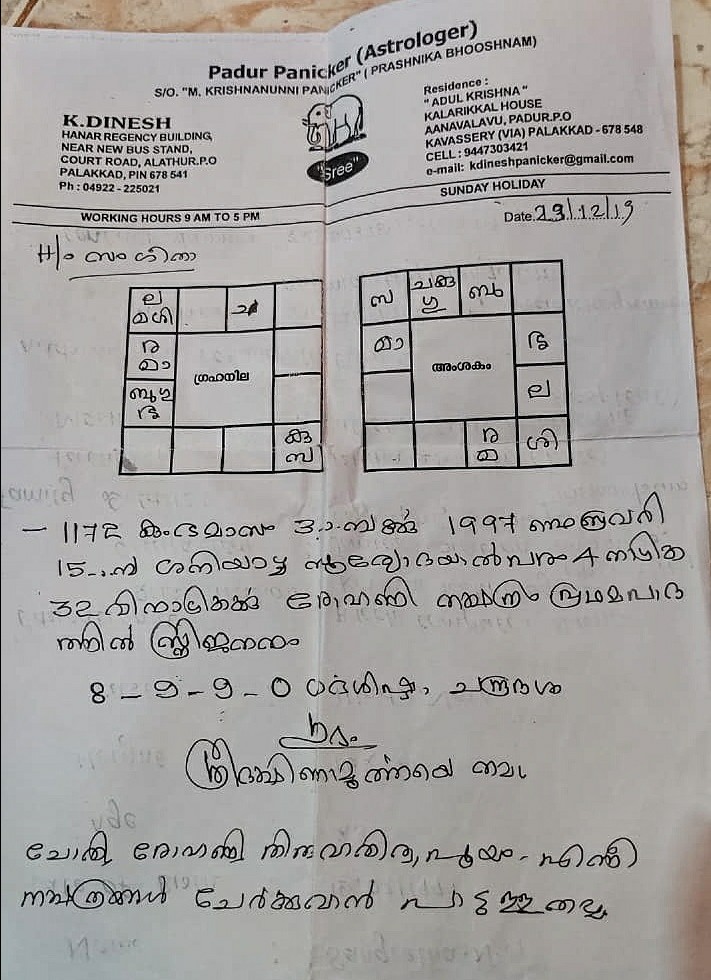 Padur Panicker (Astrologer)
S/O. "M. KRISHNANUNNI PANICKER" ( PRASHNIKA BHOOSHNAM)
K.DINESH
HANAR REGENCY BUILDING,
NEAR NEW BUS STAND,
COURT ROAD, ALATHUR.P.O
PALAKKAD, PIN 678 541
Ph : 04922 - 225021
"Sree"
Residence :
" ADUL KRISHNA "
KALARIKKAL HOUSE
AANAVALAVU, PADUR.P.O
KAVASSERY (VIA) PALAKKAD - 678 548
CELL : 9447303421
e-mail: kdineshpanicker@gmail.com
WORKING HOURS 9 AM TO 5 PM
SUNDAY HOLIDAY
Date. 23/12/19
സംഗീതാ
ല
മശി
ച
ര
മാ
ബുഗു
ശു
കു
സ
ഗ്രഹനില
സ
ചകു
ഗു
ബു
മാ
ശു
ല
ര
മ
ശി
അംശകം
– 1172 കുംഭമാസം 3ാം നക്കു 1997 ഫെബ്രുവരി
15–ാം ന് ശനിയാഴ്ച സൂര്യോദയാൽപരം 4 നാഴിക
32 വിനാഴികക്കു രോഹിണി നക്ഷത്രം പ്രഥമപാദ
ത്തിൽ സ്ത്രീജനനം
8 – 9 – 9 – 0 ഗർഭശിഷ്ടം, ചന്ദ്രദശ
ശുഭം
ശ്രീദക്ഷിണാമൂർത്തയെ നമഃ
ചോതി, രോഹിണി, തിരുവാതിര, പൂയം - എന്നീ
നക്ഷത്രങ്ങൾ ചേർക്കുവാൻ പാടുള്ളതല്ല